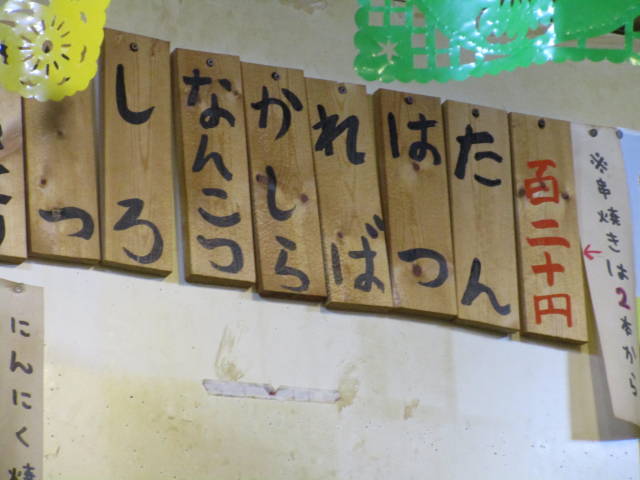 ※串焼きは2本から
百二十円
たん
はつ
ればれ
かしら
なんこつ
しろ
っ
にんにく焼